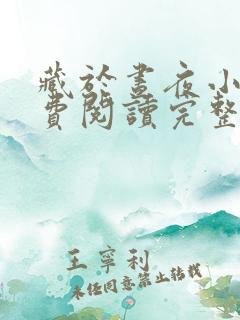 藏於晝夜小
費閱讀完整
王寧利
未任同意禁止转载